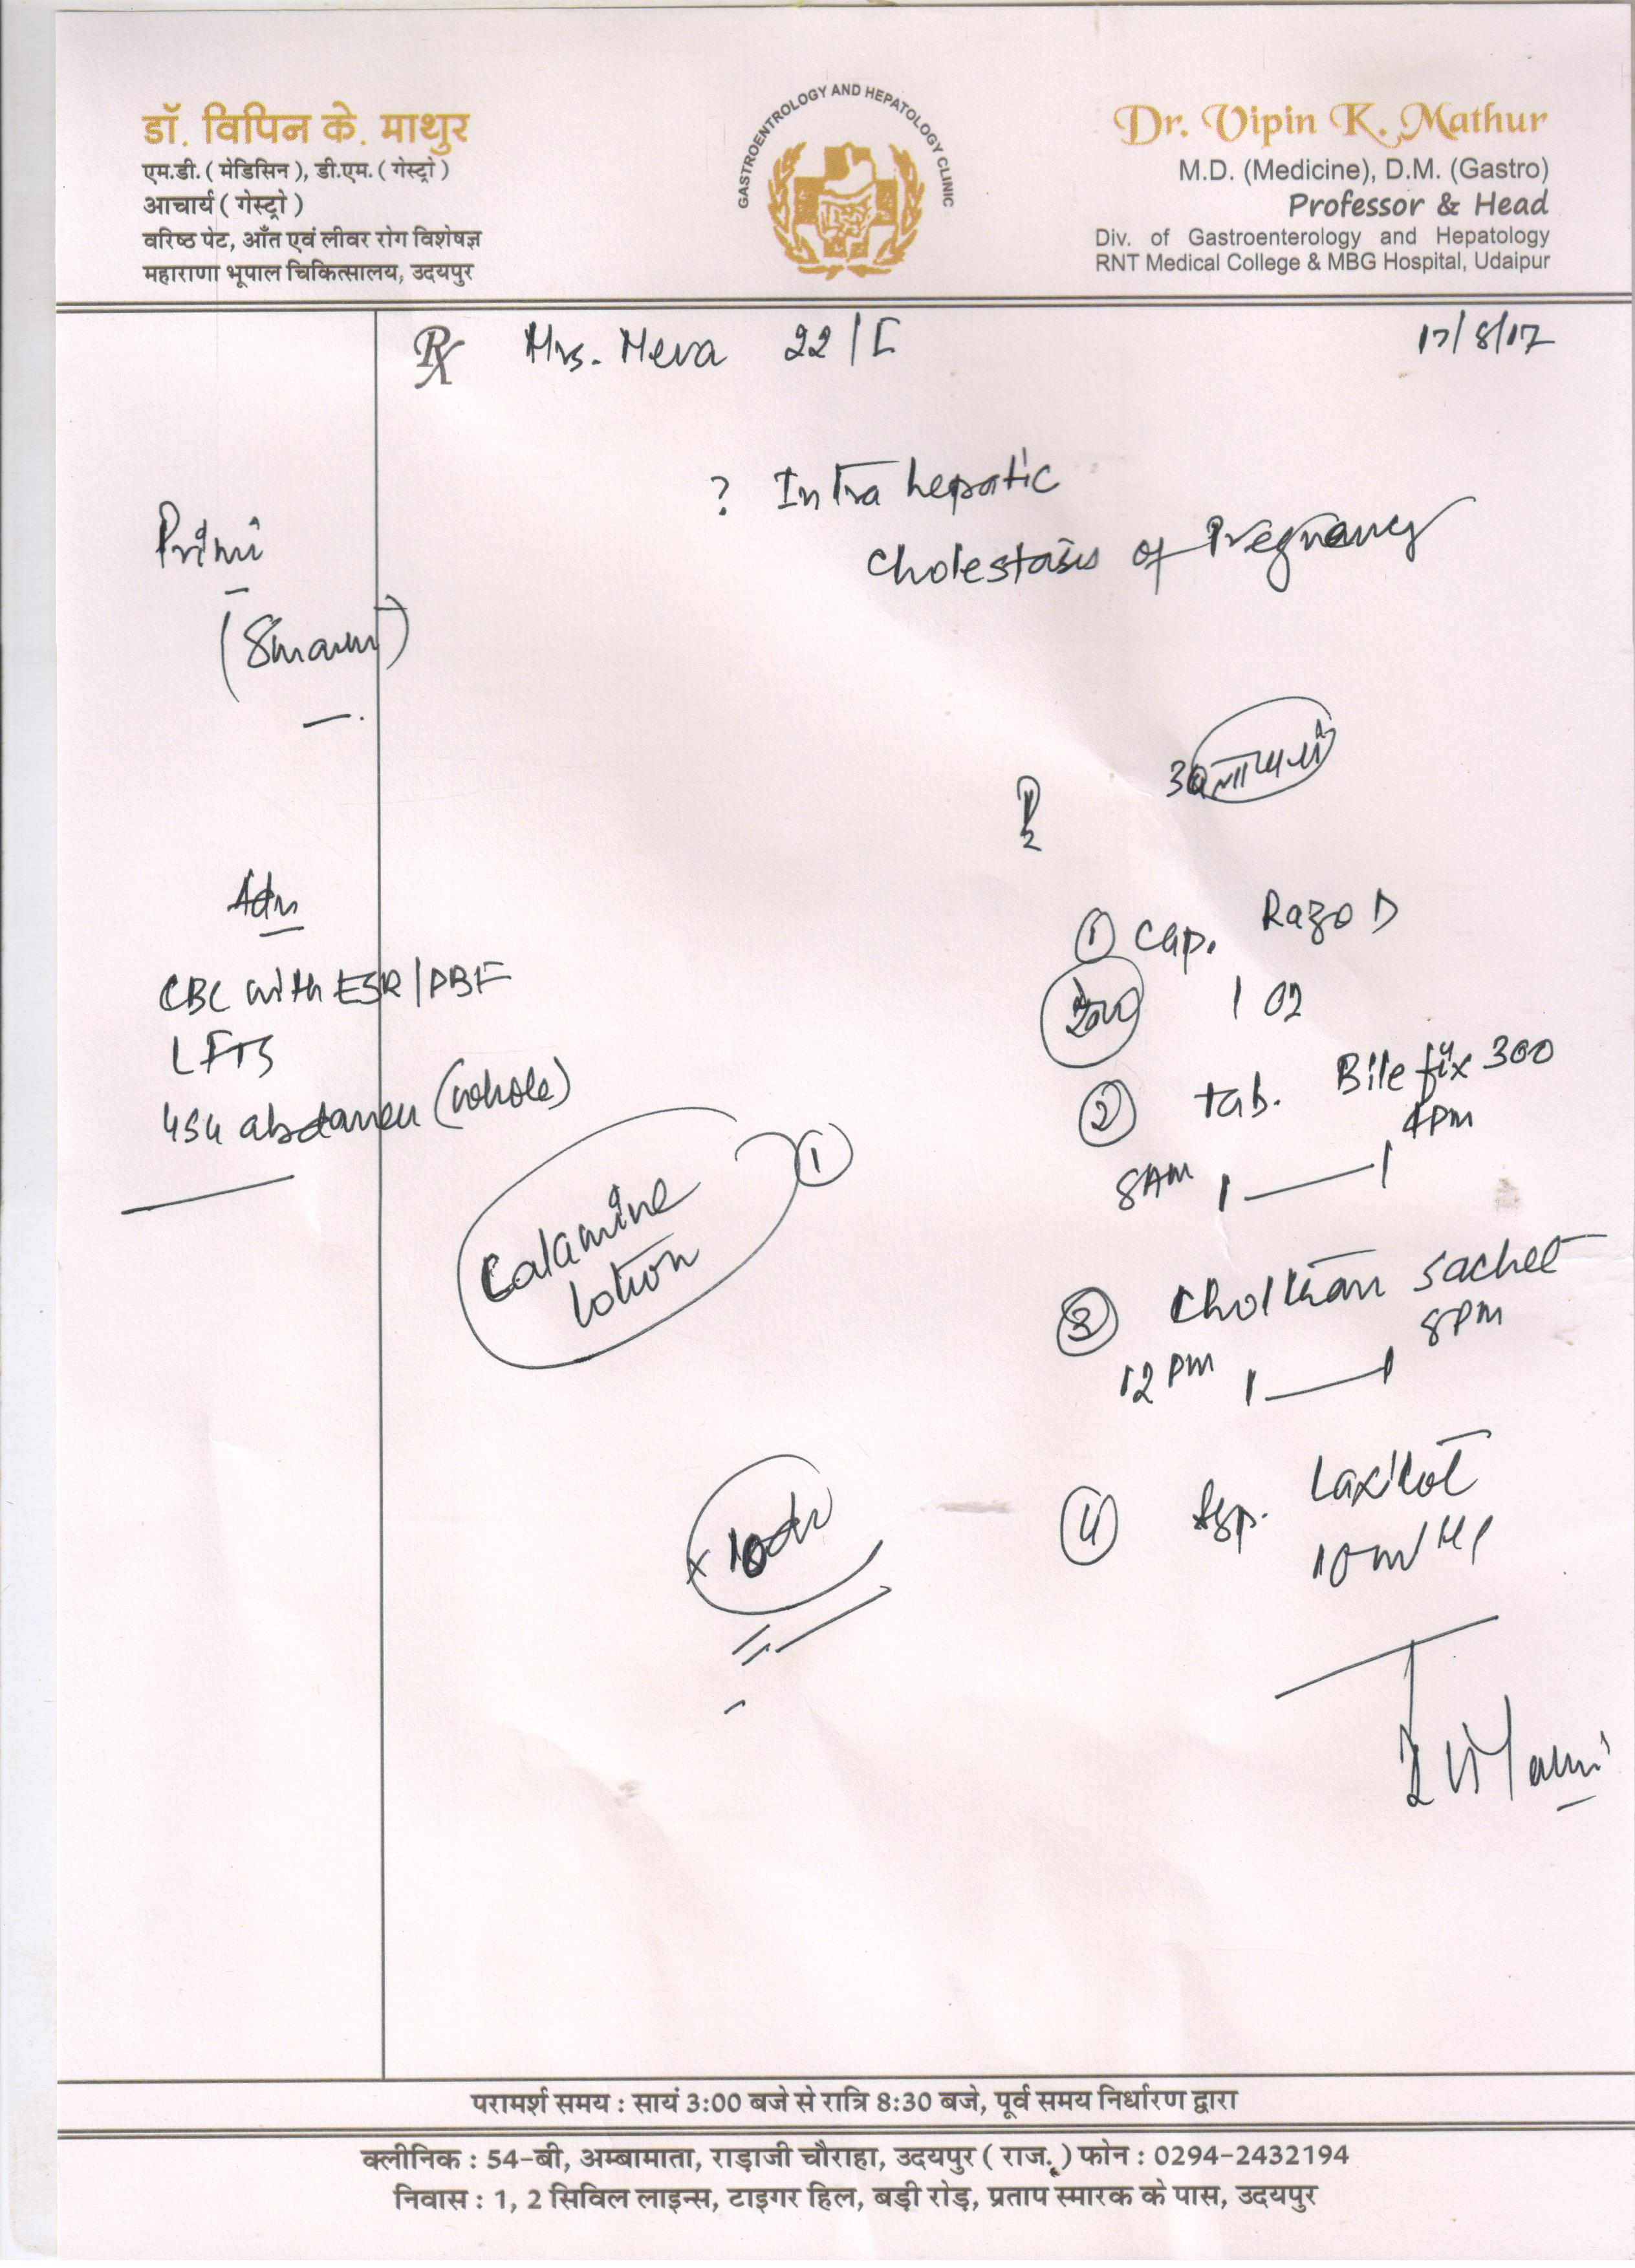 डॉ. विपिन के. माथुर
एम.डी. ( मेडिसिन ), डी.एम. ( गेस्ट्रो )
आचार्य ( गेस्ट्रो )
वरिष्ठ पेट, आँत एवं लीवर रोग विशेषज्ञ
महाराणा भूपाल चिकित्सालय, उदयपुर
GASTROENTROLOGY AND HEPATOLOGY CLINIC
Dr. Vipin K. Mathur
M.D. (Medicine), D.M. (Gastro)
Professor & Head
Div. of Gastroenterology and Hepatology
RNT Medical College & MBG Hospital, Udaipur
Rx Mrs. Meva 22/F 17/8/17
? Intra hepatic
Cholestasis of Pregnancy
Primi
Adv
CBC with ESR/PBF
LFTs
USG abdomen (whole)
① Cap. Razo D
1 OD
② tab. Bilefix 300
8AM 1 — 1 4PM
③ Choltran sachet
12 PM 1 — 1 8PM
④ Syp. Laxicot
10 ml
Calamine lotion ①
x 10d
परामर्श समय : सायं 3:00 बजे से रात्रि 8:30 बजे, पूर्व समय निर्धारण द्वारा
क्लीनिक : 54-बी, अम्बामाता, राड़ाजी चौराहा, उदयपुर ( राज. ) फोन : 0294-2432194
निवास : 1, 2 सिविल लाइन्स, टाइगर हिल, बड़ी रोड़, प्रताप स्मारक के पास, उदयपुर